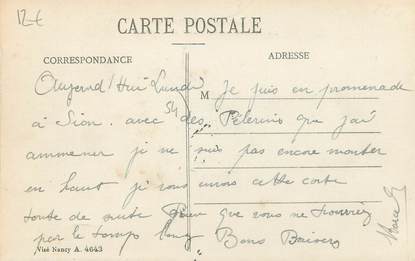 12€
CARTE POSTALE
CORRESPONDANCE
ADRESSE
Aujourd'Hui Lundi
M Je suis en promenade
à Sion. avec 54 des Pélerins que j'ai
ammener je ne suis pas encore monter
en haut je vous envois cette carte
toute de suite Pour que vous ne trouviez
par le temps long Bons Baisers
Marcel
Visé Nancy A. 4643